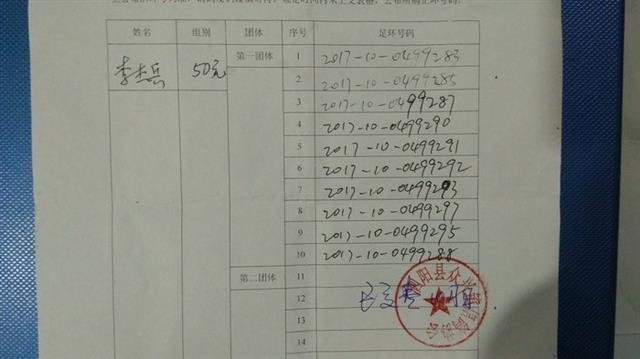 姓名 组别 团体 序号 足环号码
李杰兵 50元 第一团体 1 2017-10-0499283
2 2017-10-0499285
3 2017-10-0499287
4 2017-10-0499290
5 2017-10-0499291
6 2017-10-0499292
7 2017-10-0499293
8 2017-10-0499297
9 2017-10-0499295
10 2017-10-0499288
第二团体 11
12
13
14